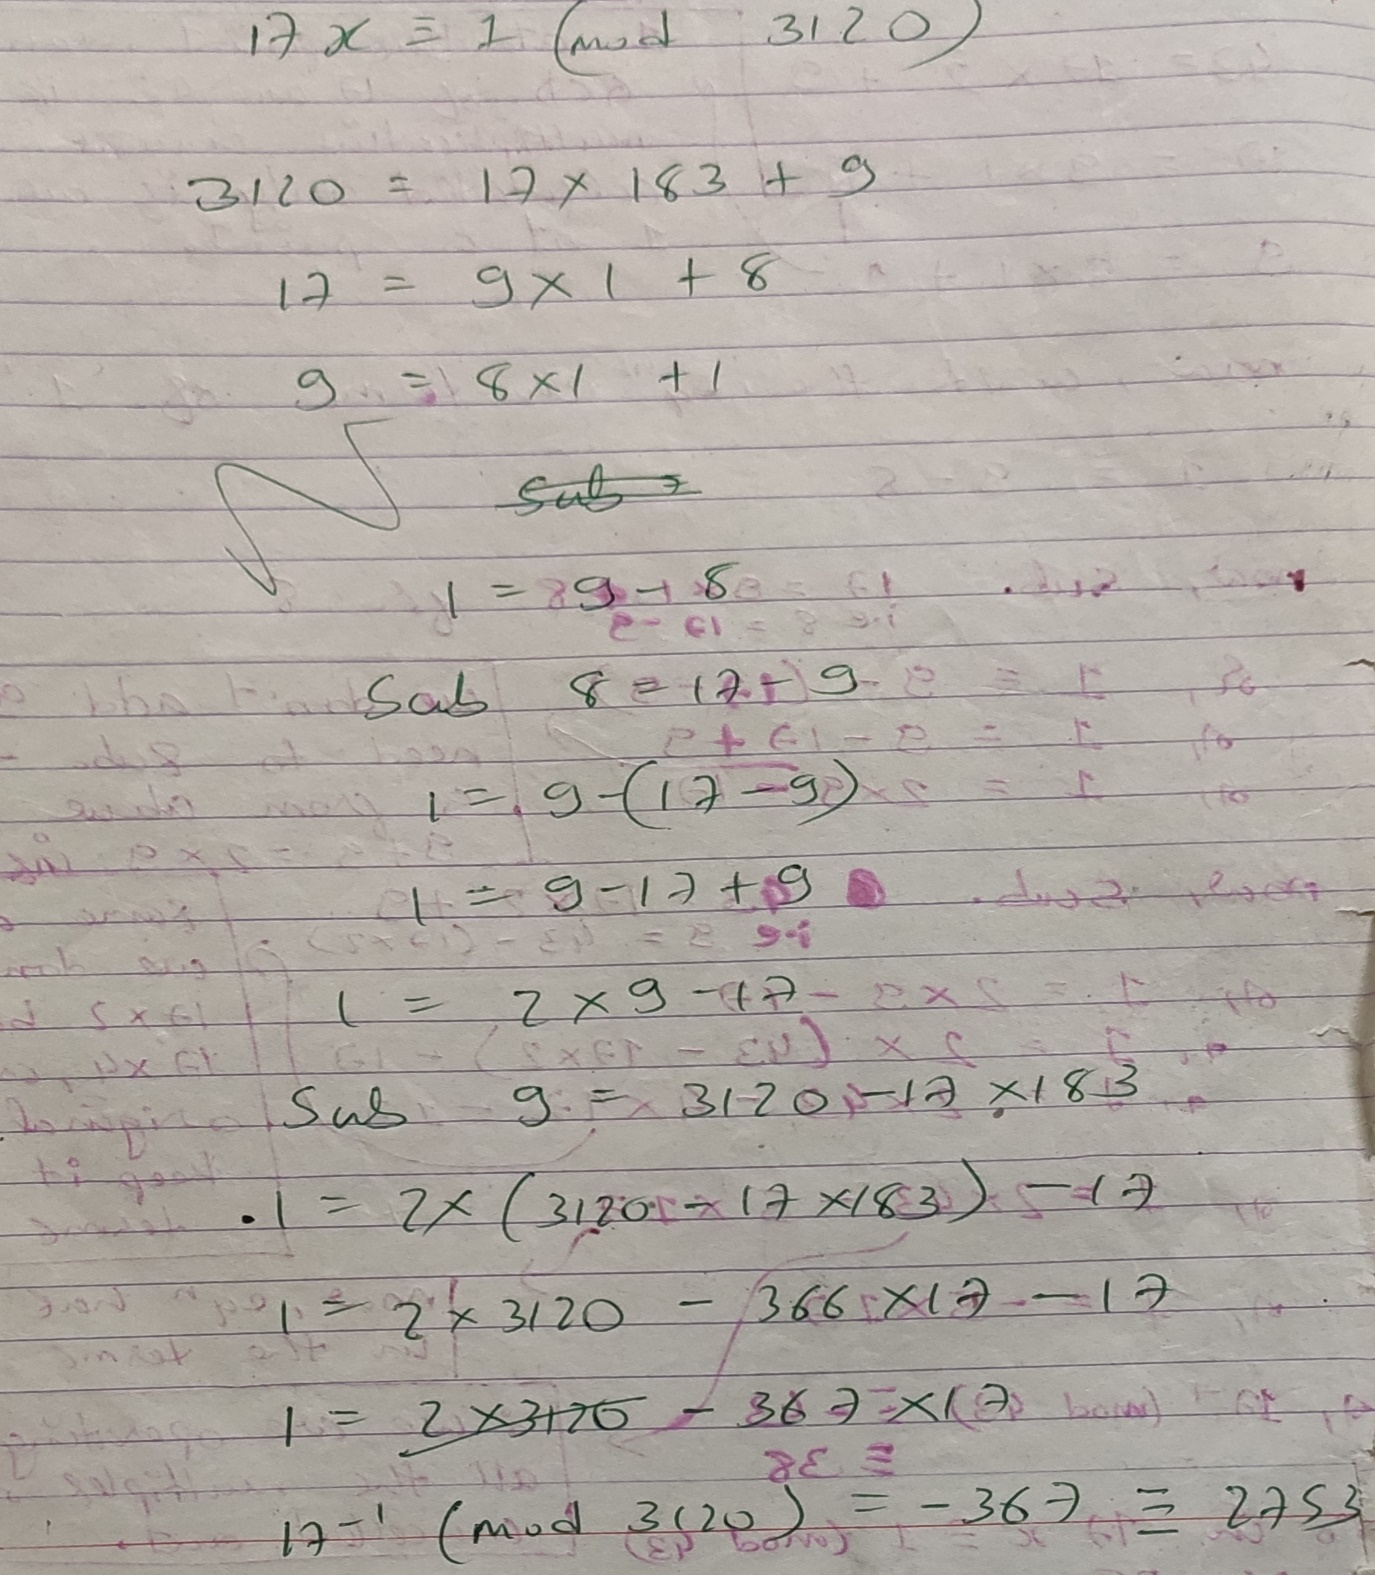 17 x ≡ 1 (mod 3120)
3120 = 17 × 183 + 9
17 = 9 × 1 + 8
9 = 8 × 1 + 1
Sub
1 = 9 - 8
Sub 8 = 17 - 9
1 = 9 - (17 - 9)
1 = 9 - 17 + 9
1 = 2 × 9 - 17
Sub 9 = 3120 - 17 × 183
1 = 2 × (3120 - 17 × 183) - 17
1 = 2 × 3120 - 366 × 17 - 17
1 = 2 × 3120 - 367 × 17
17⁻¹ (mod 3120) = - 367 ≡ 2753